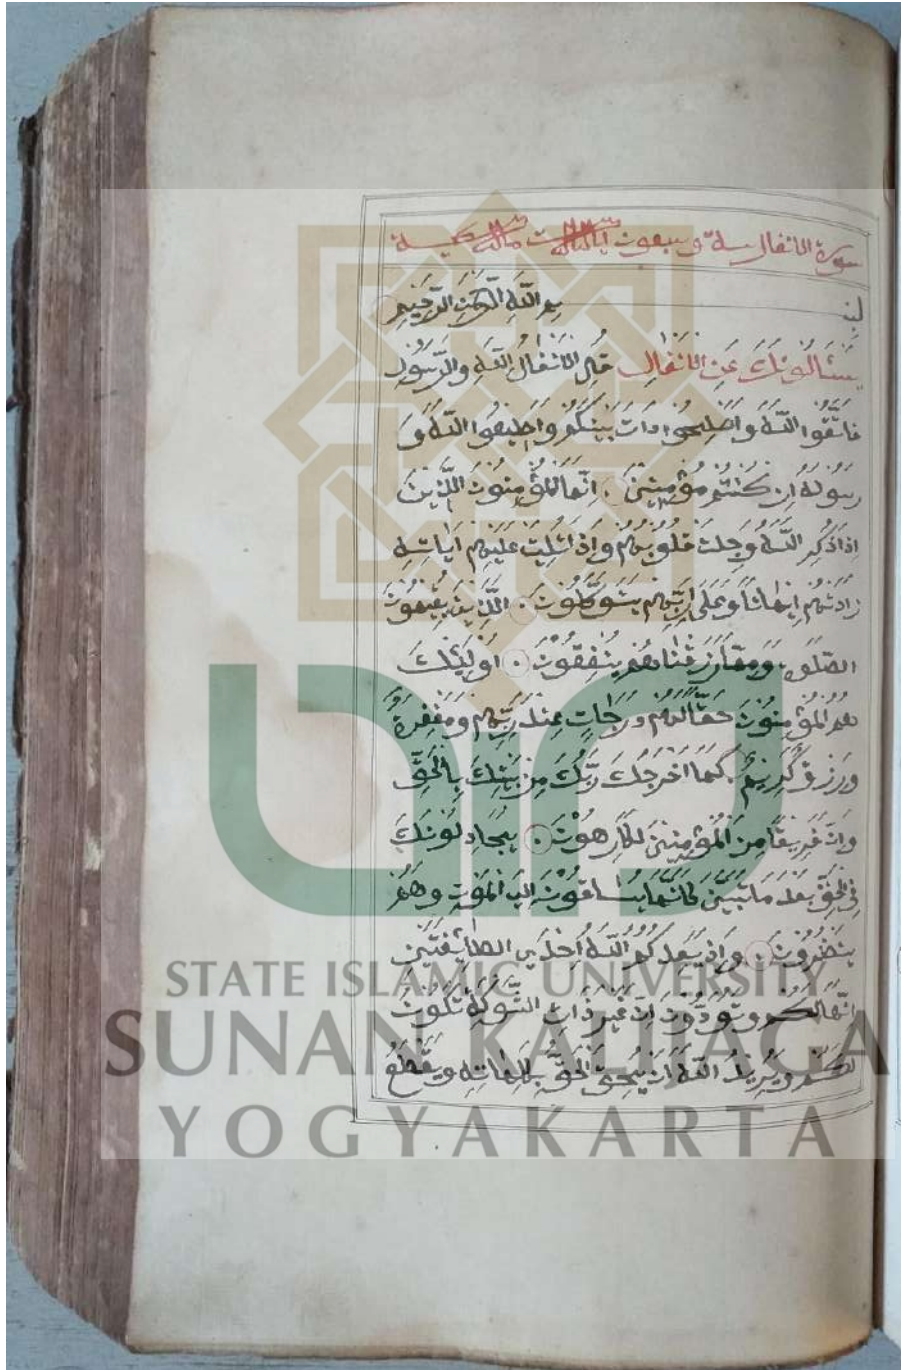 سورة الانفال ستة وسبعون
بسم الله الرحمن الرحيم
يسئالونك عن الانفال قل الانفال لله والرسول
فاتقوا الله واصلحوا ذات بينكم واطيعوا الله و
رسوله ان كنتم مؤمنين انما المؤمنون الذين
اذا ذكر الله وجلت قلوبهم واذا تليت عليهم اياته
زادتهم ايمانا وعلى ربهم يتوكلون الذين يقيمون
الصلوة ومما رزقناهم ينفقون اولئك
هم المؤمنون حقا لهم درجات عند ربهم ومغفرة
ورزق كريم كما اخرجك ربك من بيتك بالحق
وان فريقا من المؤمنين لكارهون يجادلونك
في الحق بعد ما تبين كانما يساقون الى الموت وهم
ينظرون واذ يعدكم الله احدى الطائفتين
انها لكم وتودون ان غير ذات الشوكة تكون
لكم ويريد الله ان يحق الحق بكلماته ويقطع
STATE ISLAMIC UNIVERSITY
SUNAN KALIJAGA
YOGYAKARTA